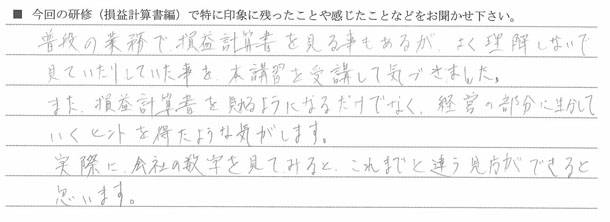 ■ 今回の研修（損益計算書編）で特に印象に残ったことや感じたことなどをお聞かせ下さい。
普段の業務で、損益計算書を見る事もあるが、よく理解しないで
見ていたりしていた事を、本講習を受講して気づきました。
また、損益計算書を見れるようになるだけでなく、経営の部分に生かして
いくヒントを得たような気がします。
実際に、会社の数字を見てみると、これまでと違う見方ができると
思います。